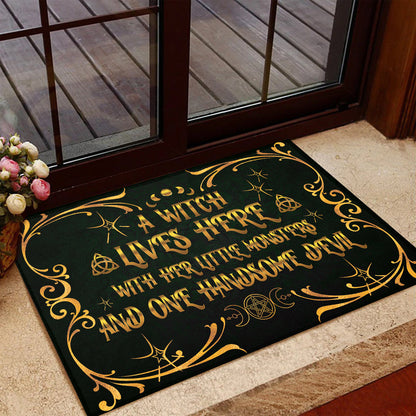 A WITCH
LIVES HERE
WITH HER LITTLE MONSTERS
AND ONE HANDSOME DEVIL